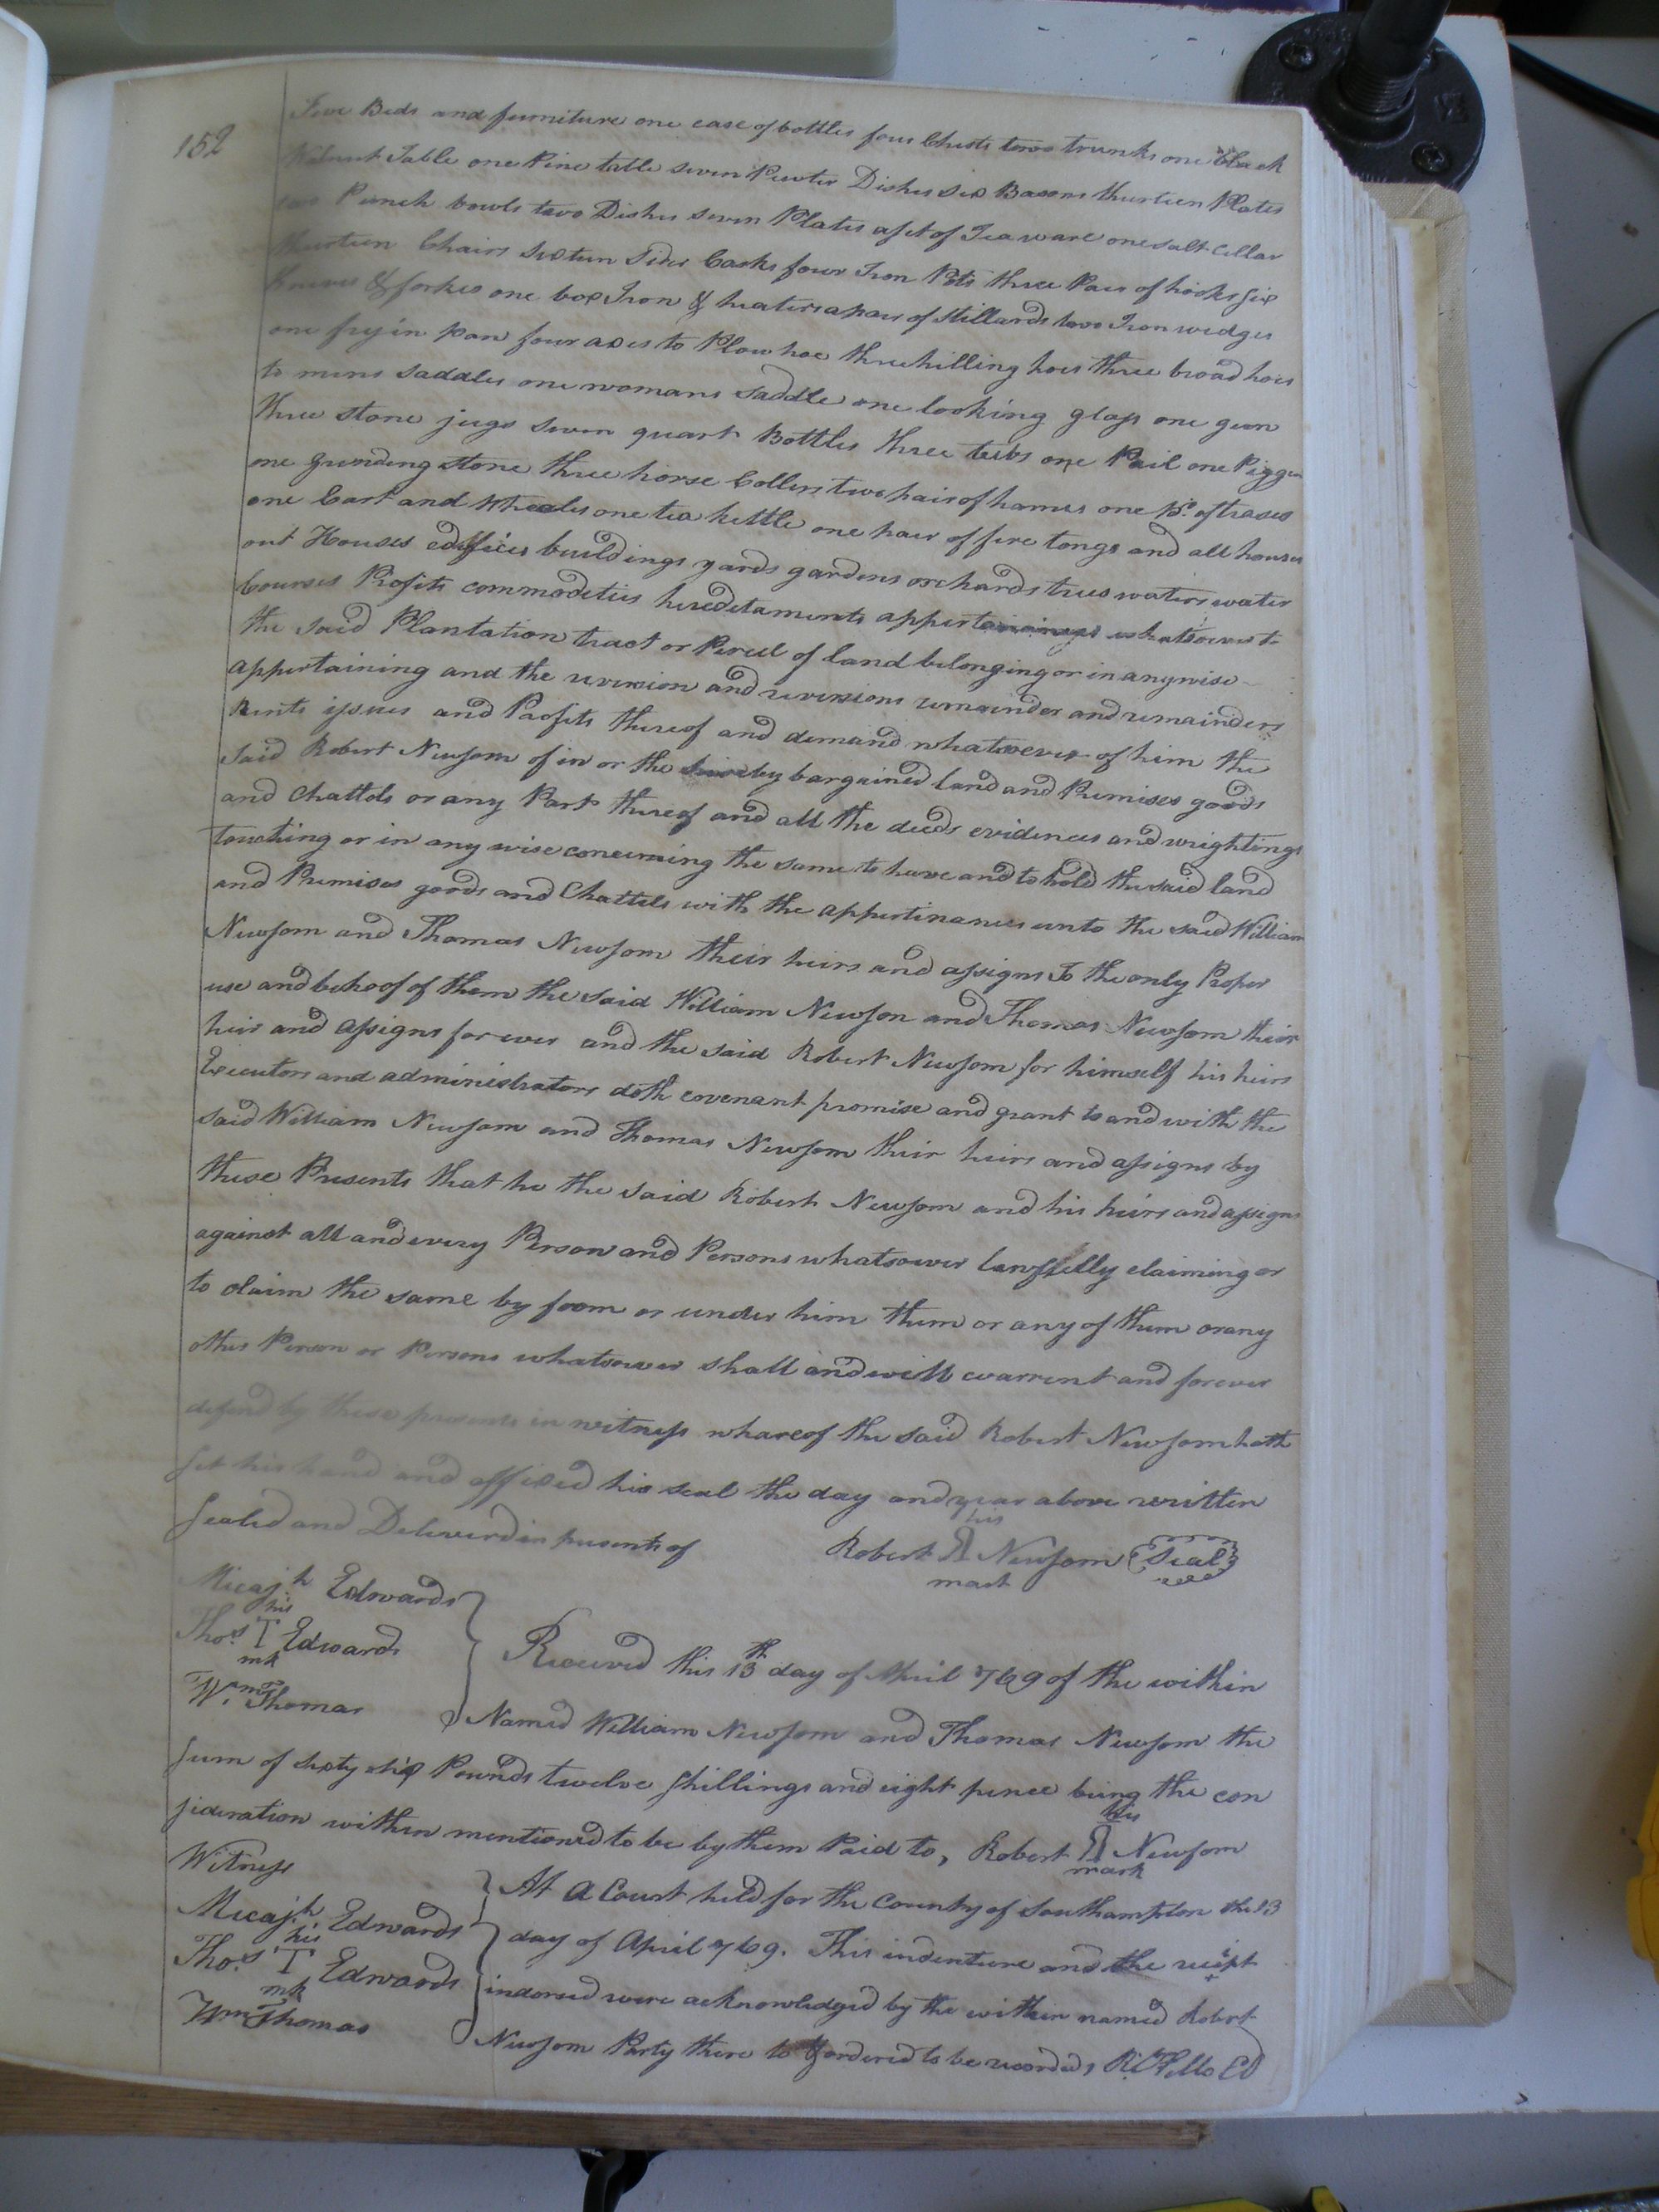 152
Five Beds and furniture one case of bottles four Chests two trunks one black
Walnut Table one Pine table seven Pewter Dishes six Basons thurteen Plates
two Punch bowls two Dishes seven Plates a set of Tea ware one salt cellar
thurteen Chairs sixteen Sider Casks four Iron Pots three Pair of hooks six
knives & forkes one box Iron & heaters a pair of Stillards two Iron wedges
one fryin pan four axes to Plow hoe three hilling hoes three broad hoes
to mens saddles one womans saddle one looking glass one gun
three stone jugs seven quart Bottles three tubs one Pail one Piggen
one grunding stone three horse Collers two hair of hames one pr. of trases
one Cart and Wheales one tea kettle one hair of fire tongs and all houses
out Houses edifices buildings yards gardens orchards trees waters water
Courses Profits commodeties hereditaments appertainings whatsoever to
the said Plantation tract or Percel of land belonging or in any wise
appertaining and the revirsion and revirsions remainder and remainders
Rents issues and Profits thereof and demand whatsoever of him the
said Robert Newsom of in or the hereby bargained land and Premises goods
and Chattels or any Part thereof and all the deeds evidences and wrightings
touching or in any wise concerning the same to have and to hold the said land
and Premises goods and Chattels with the appertinances unto the said William
Newsom and Thomas Newsom their heirs and assigns To the only Proper
use and behoof of them the said William Newson and Thomas Newsom their
heir and assigns for ever and the said Robert Newsom for himself his heirs
Executors and administrators doth covenant promise and grant to and with the
said William Newsom and Thomas Newsom their heirs and assigns by
these Presents that he the said Robert Newsom and his heirs and assigns
against all and every Person and Persons whatsoever lawfully claiming or
to claim the same by from or under him them or any of them or any
other Person or Persons whatsoever shall and will warrent and forever
defend by these presents in witness whareof the said Robert Newsom hath
set his hand and affixed his seal the day and year above written
Sealed and Deliverd in presents of
his
Robert R Newsom Seal
mark
Micajh Edwards
his
Thos. T Edwards
mk
Wm. Thomas
Received this 13th day of April 1769 of the within
Named William Newsom and Thomas Newsom the
sum of sixty six Pounds twelve shillings and eight pence being the con
sideration within mentioned to be by them Paid to,
his
Robert R Newsom
mark
Witness
Micajh Edwards
his
Thos. T Edwards
mk
Wm Thomas
At a Court held for the County of Southampton the 13
day of April 1769. This indenture and the recipt
indorsed were acknowledged by the within named Robert
Newsom Party there to & ordered to be recorded,